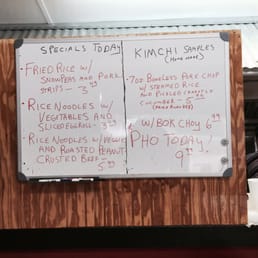 SPECIALS TODAY
FRIED RICE W/
SNOWPEAS AND PORK
STRIPS - 3.99
RICE NOODLES W/
VEGETABLES AND
SLICED EGGROLL - 3.99
RICE NOODLES W/ VEGGIES
AND ROASTED PEANUT
CRUSTED BEEF - 5.99
KIMCHI SAMPLES
(HOME MADE)
7OZ BONELESS PORK CHOP
W/ STEAMED RICE
AND PICKLED CARROTS
CUCUMBER - 5
W/ BOK CHOY 6.99
PHO TODAY!
9.99